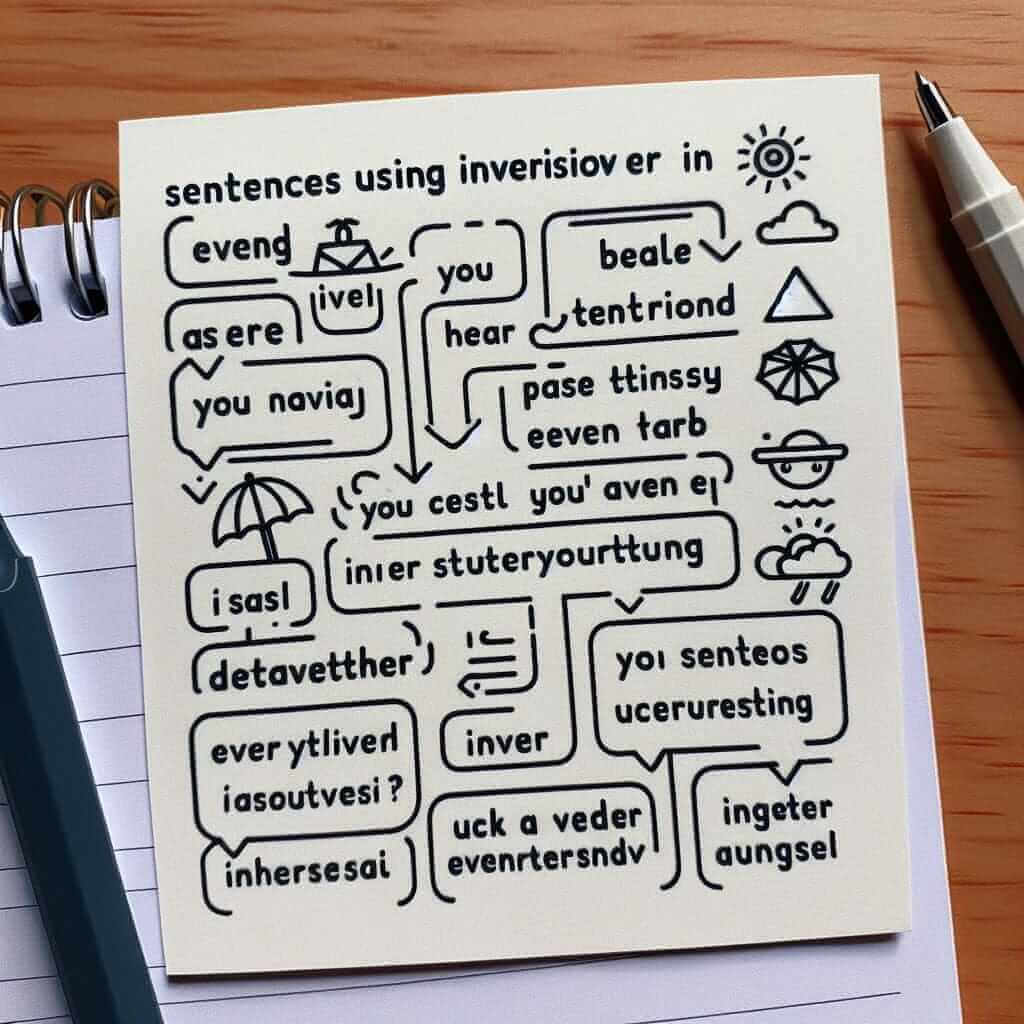 sentences using inverisiov er in
evend
ivel
you
beale
as ere
hear
tentriond
you naviaj
pase ttinssy
eeven tarb
you cestl you' aven e
inier stuteryourttung
i sasl
detavetther
yoi senteos
uceruresting
ever ytliverl
iasoutvesi ?
inver
uck a veder
evenrtersndv
ingeter
aungsel
inhersesai